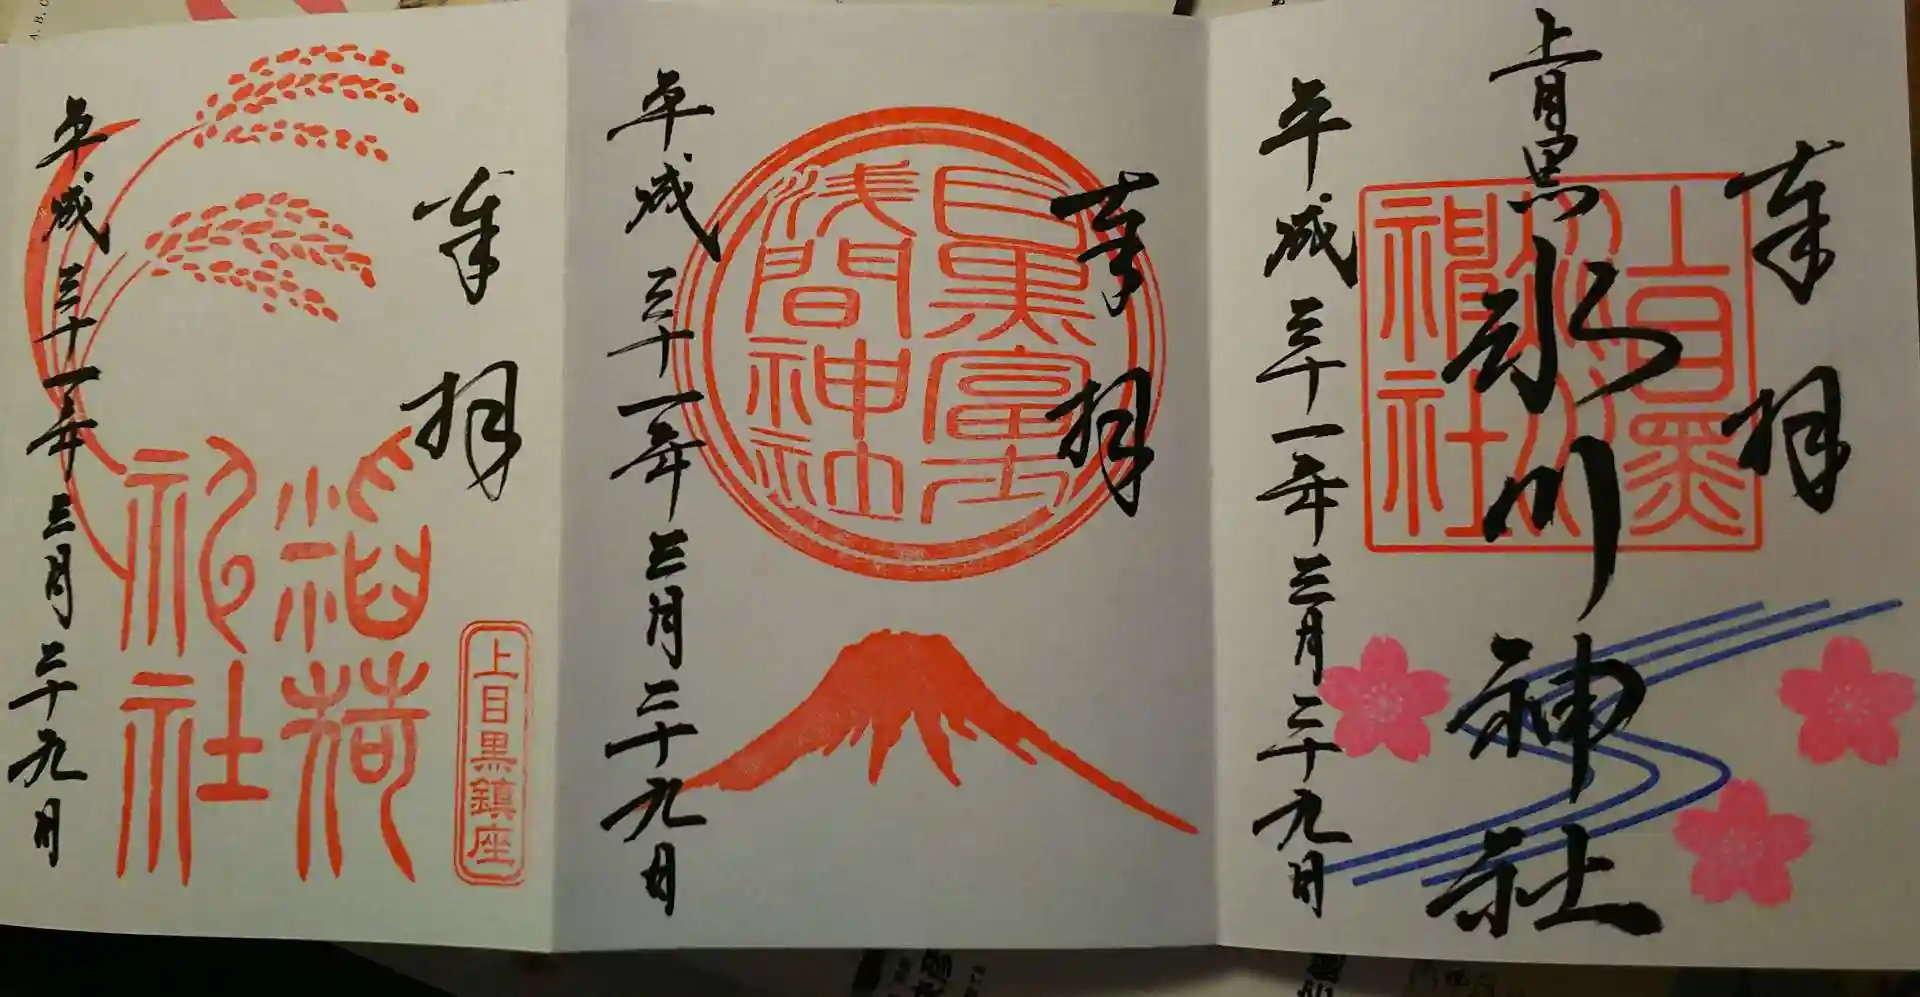 奉拝
上目黒
氷川神社
上目黒
氷川
神社
平成三十一年三月二十九日
奉拝
目黒富士
浅間神社
平成三十一年三月二十九日
奉拝
稲荷
神社
上目黒鎮座
平成三十一年三月二十九日